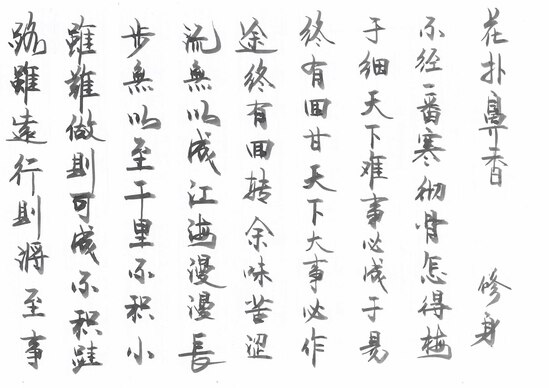 路雖遠行則將至事
雖難做則可成不積跬
步無以至千里不積小
流無以成江海漫漫長
途終有回转余味苦涩
終有回甘天下大事必作
于细天下难事必成于易
不经一番寒彻骨怎得梅
花扑鼻香 修身